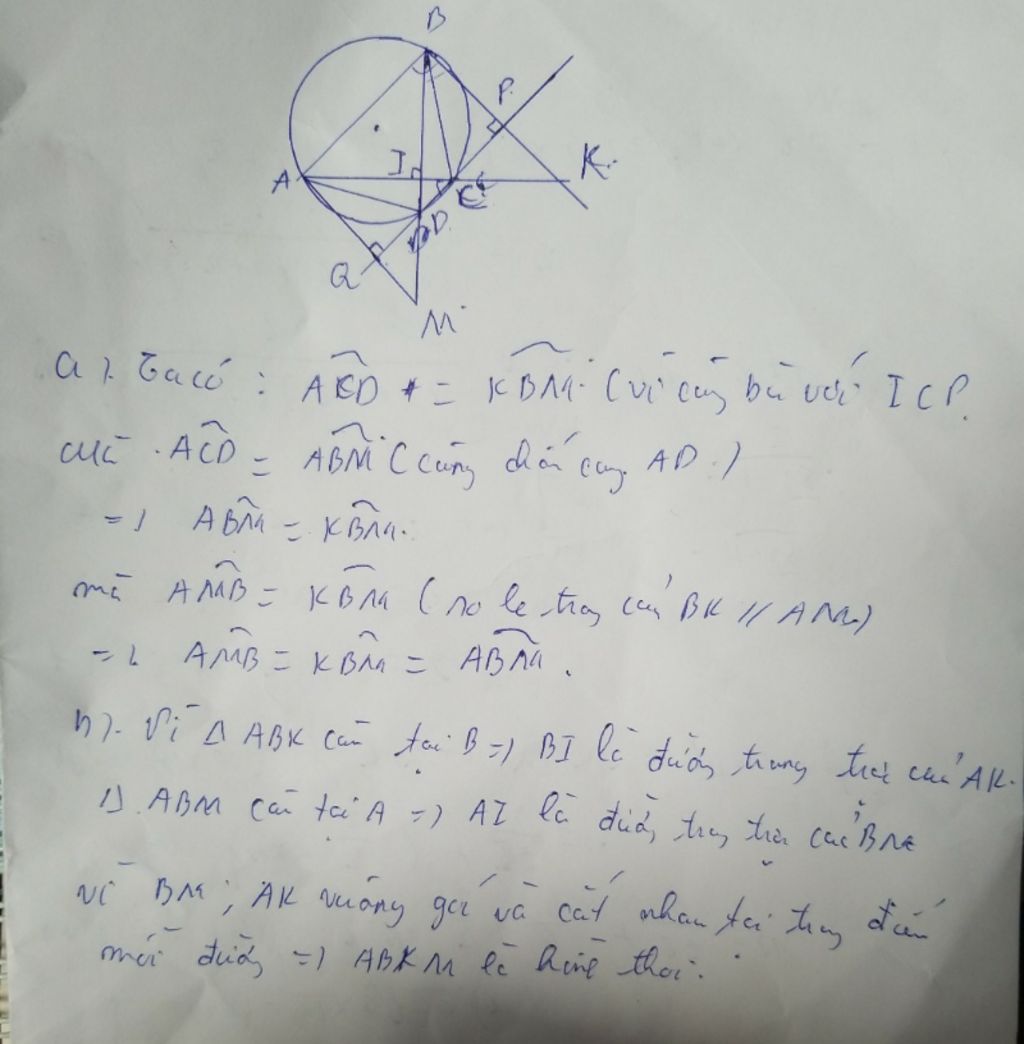 B
P
I
K
A
C
D
Q
M
a). Ta có : ACD = KBM (vì cùng bù với ICP.
Mà ACD = ABM (cùng chắn cung AD.)
=> ABM = KBM.
mà AMB = KBM (so le trong của BK // AM)
=> AMB = KBM = ABM.
b). Vì Δ ABK cân tại B => BI là đường trung trực của AK.
Δ ABM cân tại A => AI là đường trung trực của BM
vì BM ; AK vuông góc và cắt nhau tại trung điểm
mỗi đường => ABKM là hình thoi.